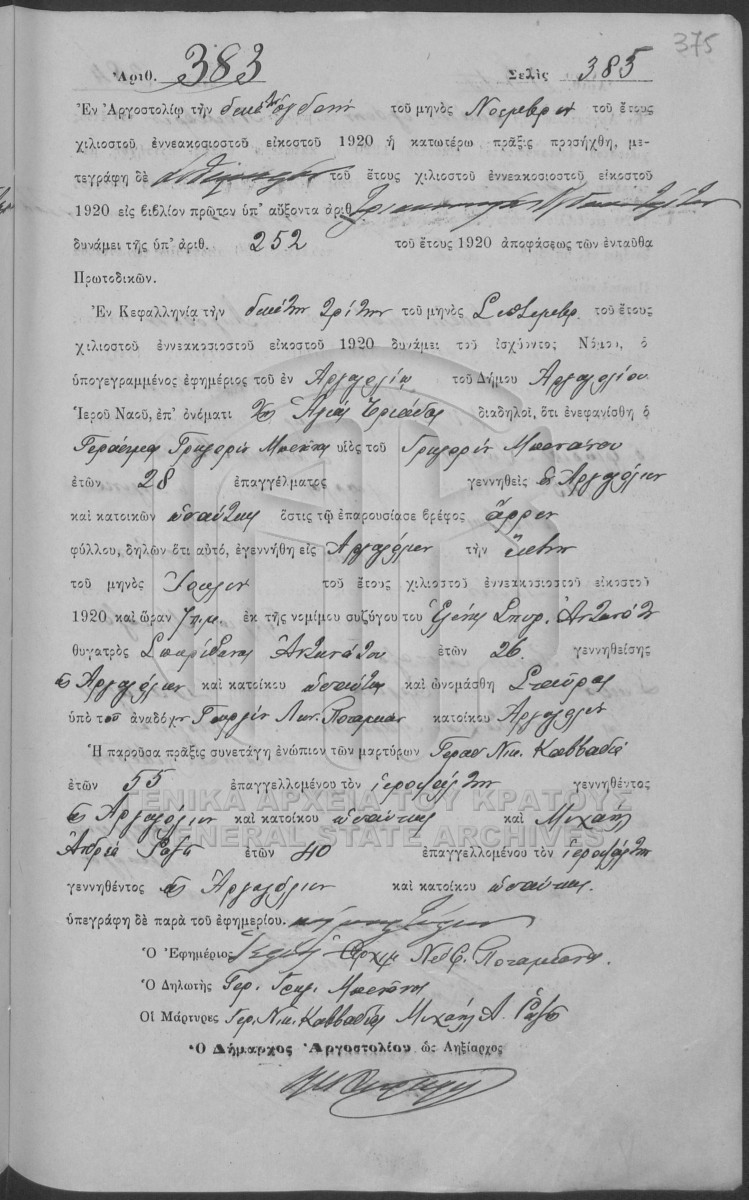 375
Ἀριθ. 383 Σελὶς 385
Ἐν Ἀργοστολίῳ τὴν τοῦ μηνὸς Νοεμβρίου τοῦ ἔτους
χιλιοστοῦ ἐννεακοσιοστοῦ εἰκοστοῦ 1920 ἡ κατωτέρω πρᾶξις προσήχθη, με-
τεγράφη δὲ τοῦ ἔτους χιλιοστοῦ ἐννεακοσιοστοῦ εἰκοστοῦ
1920 εἰς βιβλίον πρῶτον ὑπ' αὔξοντα ἀριθ.
δυνάμει τῆς ὑπ' ἀριθ. 252 τοῦ ἔτους 1920 ἀποφάσεως τῶν ἐνταῦθα
Πρωτοδικῶν.
Ἐν Κεφαλληνίᾳ τὴν δεκάτην τρίτην τοῦ μηνὸς Σεπτεμβρ. τοῦ ἔτους
χιλιοστοῦ ἐννεακοσιοστοῦ εἰκοστοῦ 1920 δυνάμει τοῦ ἰσχύοντος Νόμου, ὁ
ὑπογεγραμμένος ἐφημέριος τοῦ ἐν Ἀργοστολίῳ τοῦ Δήμου Ἀργοστολίου
Ἱεροῦ Ναοῦ, ἐπ' ὀνόματι τῆς Ἁγίας Τριάδος διαδηλοῖ, ὅτι ἐνεφανίσθη ὁ
Γεράσιμος Γρηγορίου υἱὸς τοῦ Γρηγορίου
ἐτῶν 28 ἐπαγγέλματος γεννηθεὶς ἐν Ἀργοστόλιον
καὶ κατοικῶν ὡσαύτως ὅστις τῷ ἐπαρουσίασε βρέφος ἄρρεν
φύλλου, δηλῶν ὅτι αὐτό, ἐγεννήθη εἰς Ἀργοστόλιον τὴν ἕκτην
τοῦ μηνὸς Ἰουλίου τοῦ ἔτους χιλιοστοῦ ἐννεακοσιοστοῦ εἰκοστοῦ
1920 καὶ ὥραν 7 π.μ. ἐκ τῆς νομίμου συζύγου του Ἑλένης Σπυρ. Ἀντωνάτου
θυγατρὸς Σπυρίδωνος Ἀντωνάτου ἐτῶν 26 γεννηθείσης
εἰς Ἀργοστόλιον καὶ κατοίκου ὡσαύτως καὶ ὠνομάσθη Σταῦρος
ὑπὸ τοῦ ἀναδόχου Γεωργίου Νικ. κατοίκου Ἀργοστόλιον
Ἡ παροῦσα πρᾶξις συνετάγη ἐνώπιον τῶν μαρτύρων Γερασ. Νικ. Καββαδία
ἐτῶν 55 ἐπαγγελλομένου τὸν ἱεροψάλτην γεννηθέντος
εἰς Ἀργοστόλιον καὶ κατοίκου ὡσαύτως καὶ Μιχαὴλ
Ἀνδρέα ἐτῶν 40 ἐπαγγελλομένου τὸν ἱεροψάλτην
γεννηθέντος εἰς Ἀργοστόλιον καὶ κατοίκου ὡσαύτως.
ὑπεγράφη δὲ παρὰ τοῦ ἐφημερίου.
Ὁ Ἐφημέριος Ἀρχιμ.
Ὁ Δηλωτὴς Γερ. Γρηγ.
Οἱ Μάρτυρες Γερ. Νικ. Καββαδίας Μιχαὴλ Α.
Ὁ Δήμαρχος Ἀργοστολίου ὡς Ληξίαρχος
ΓΕΝΙΚΑ ΑΡΧΕΙΑ ΤΟΥ ΚΡΑΤΟΥΣ
GENERAL STATE ARCHIVES